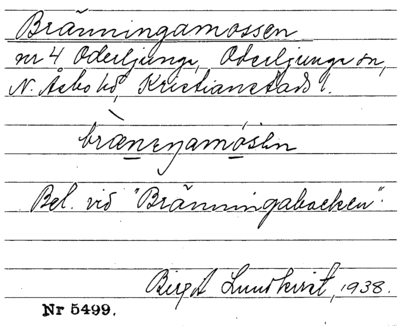 Bränningamossen
nr 4 Oderljunga, Oderljunga sn,
N. Åsbo hd, Kristianstads l.
brænɩŋamósɩn
Bel. vid "Bränningabacken".
Birgit Lundkvist, 1938.
Nr 5499.